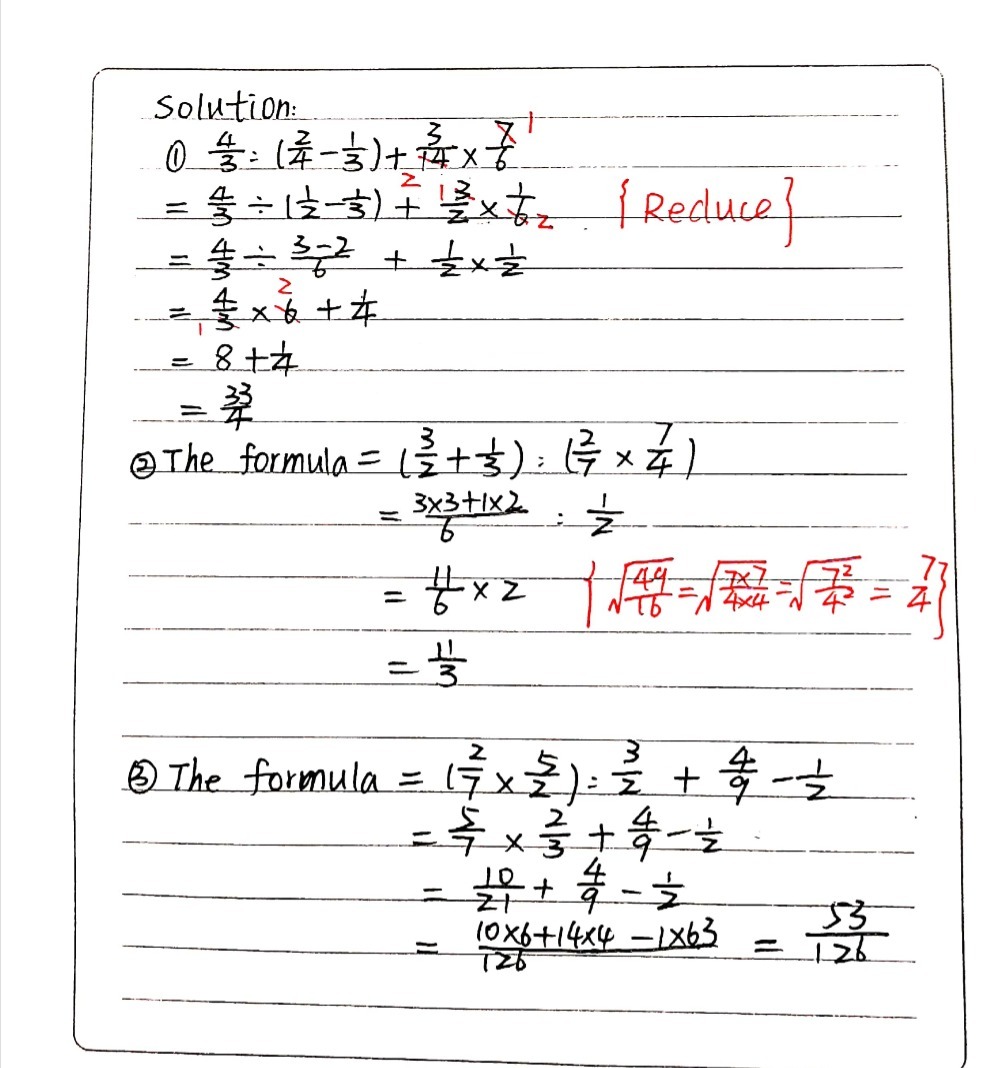 Solution:
① 4/3 : (2/4 - 1/3) + 3/14 × 7/6 1
2
= 4/3 ÷ (1/2 - 1/3) + 1 3/2 × 1/6 2 {Reduce}
= 4/3 ÷ (3-2)/6 + 1/2 × 1/2
2
= 4/3 × 6 + 1/4
1
= 8 + 1/4
= 33/4
② The formula = (3/2 + 1/3) : (2/7 × 7/4)
= (3×3+1×2)/6 : 1/2
= 11/6 × 2 {√(49/16) = √(7×7/4×4) = √(7²/4²) = 7/4}
= 11/3
③ The formula = (2/7 × 5/2) : 3/2 + 4/9 - 1/2
= 5/7 × 2/3 + 4/9 - 1/2
= 10/21 + 4/9 - 1/2
= (10×6+14×4-1×63)/126 = 53/126